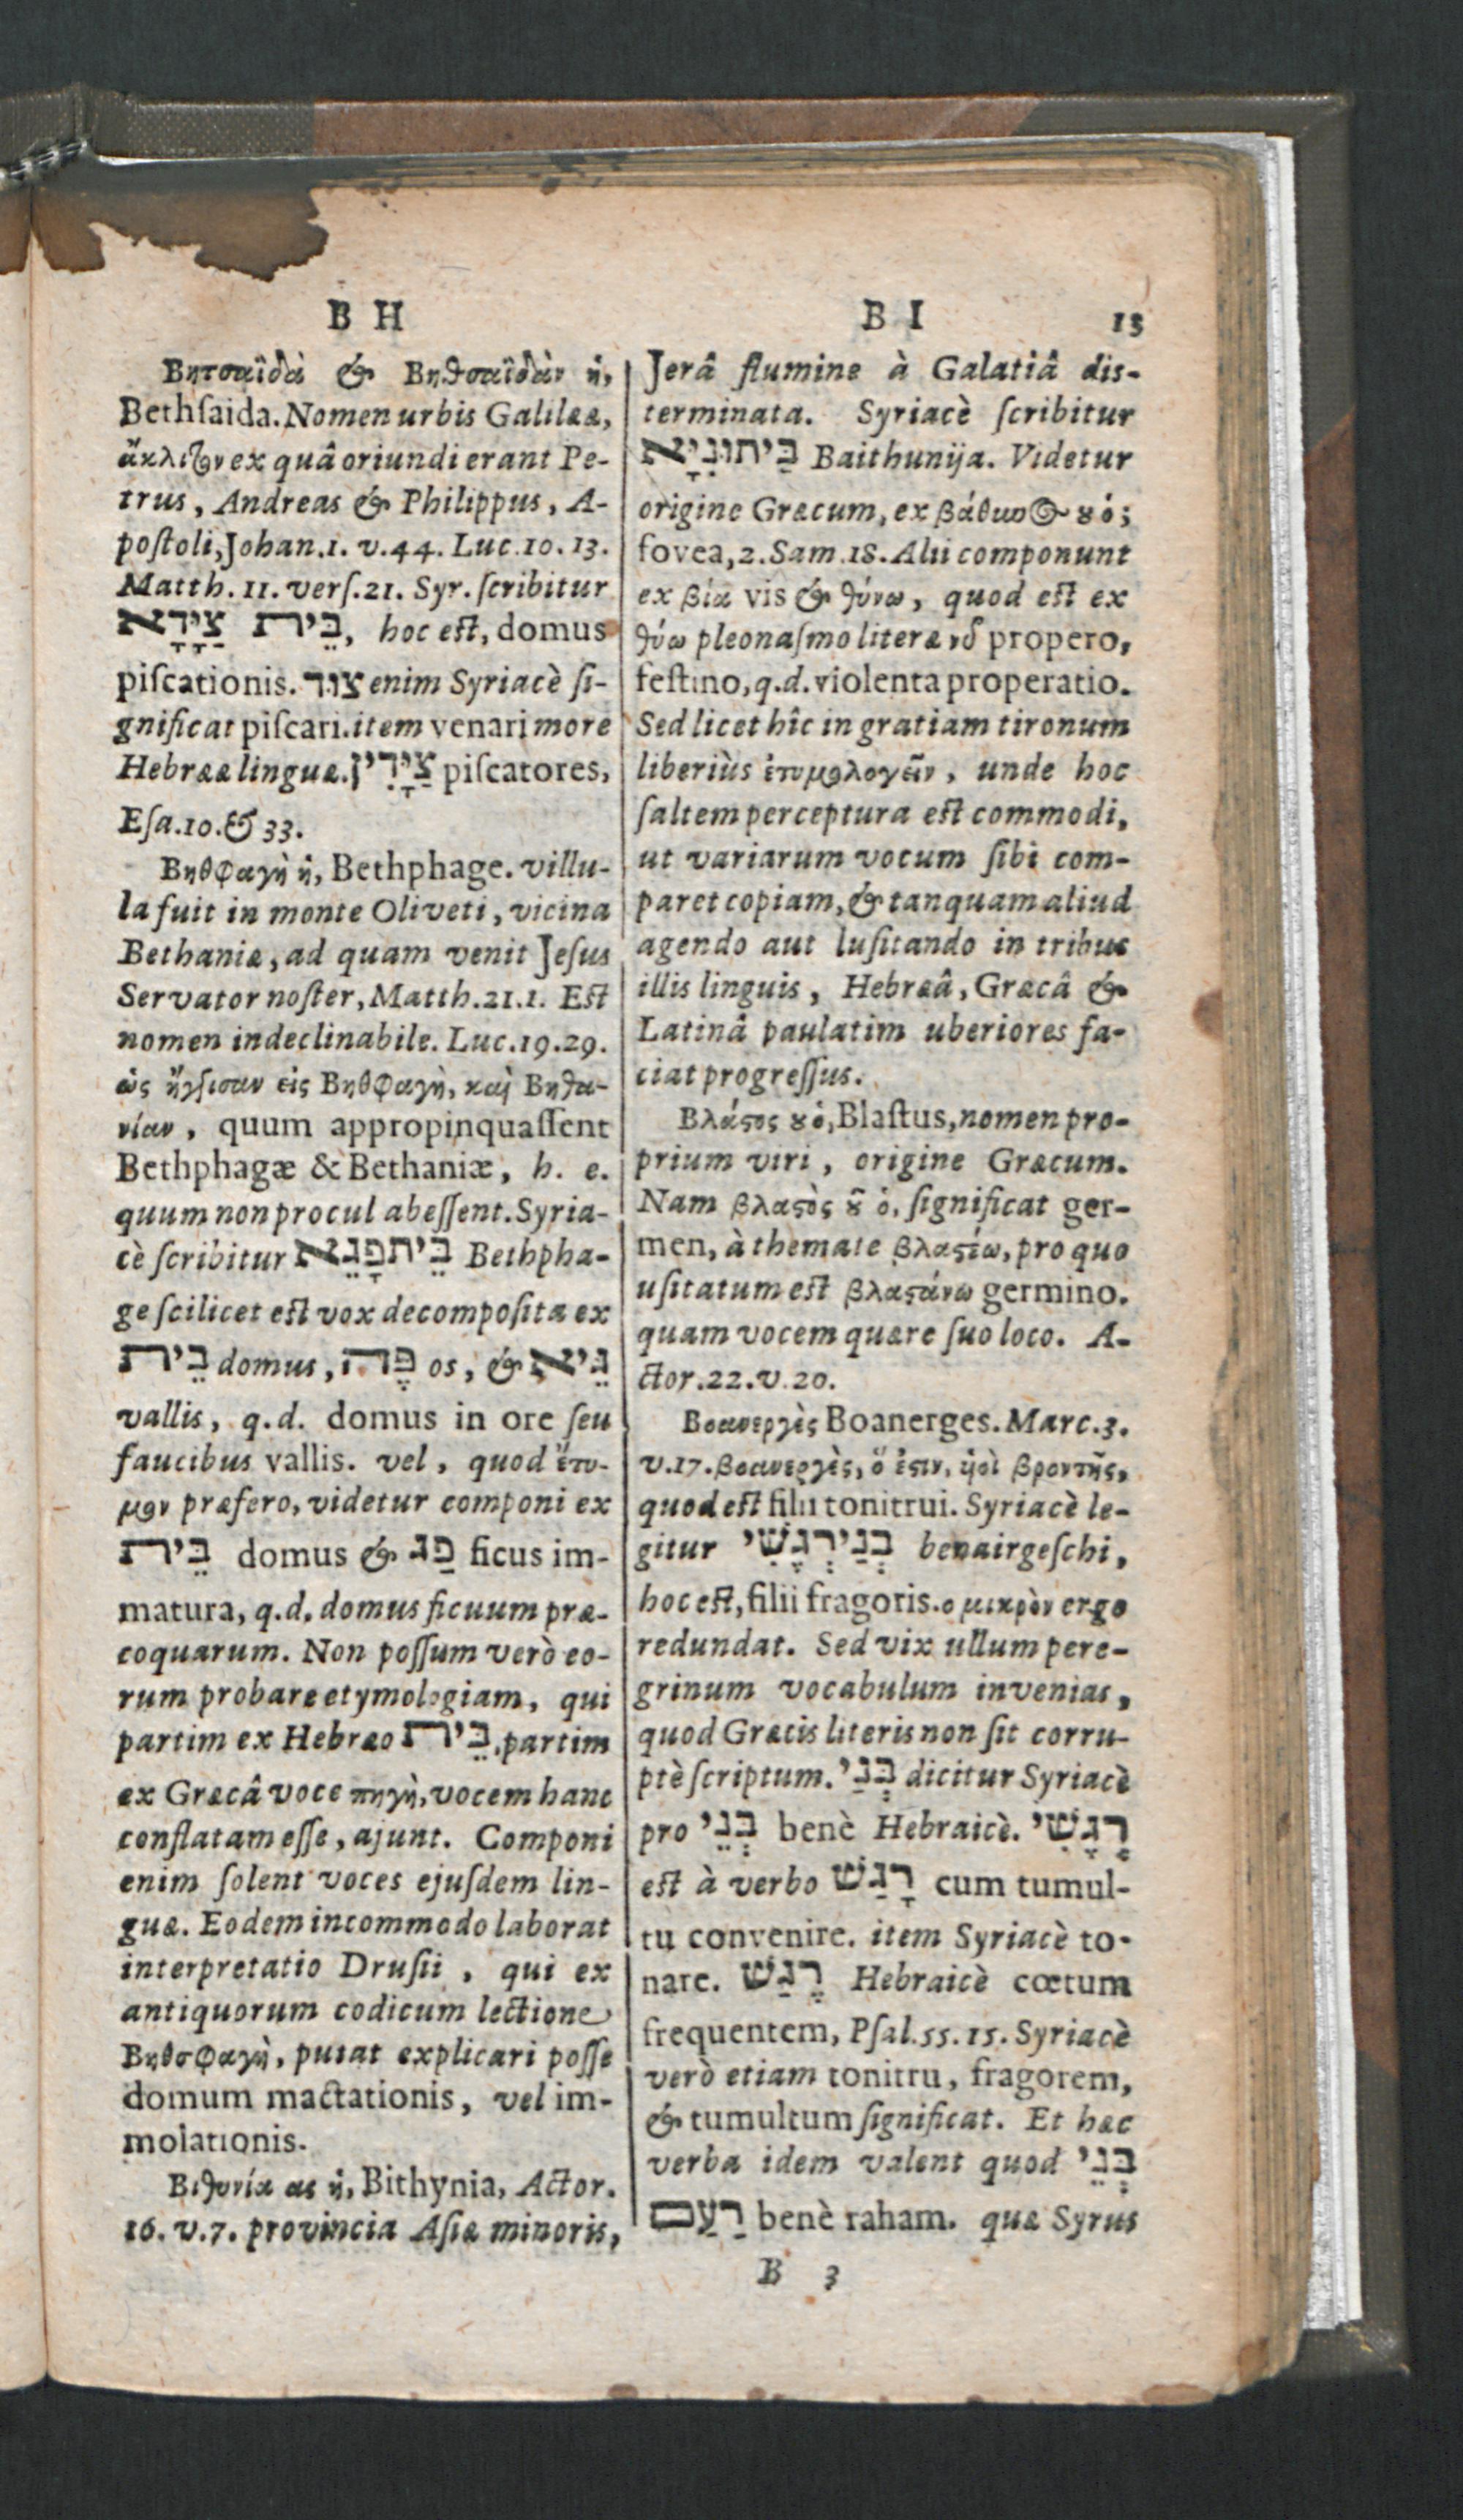 B H
Βητσαϊδὰ & Βηθσαϊδὰν ἡ,
Bethſaida. Nomen urbis Galilææ,
ἄκλιτον ex quâ oriundi erant Pe-
trus, Andreas & Philippus, A-
poſtoli, Johan. 1. v. 44. Luc. 10. 13.
Matth. 11. verſ. 21. Syr. ſcribitur
בֵּית צַיָּדָא, hoc eſt, domus
piſcationis. צוּד enim Syriacè ſi-
gnificat piſcari. item venari more
Hebrææ linguæ. צַיָּדִין piſcatores,
Eſa. 10. & 33.
Βηθφαγὴ ἡ, Bethphage. villu-
la fuit in monte Oliveti, vicina
Bethaniæ, ad quam venit Jeſus
Servator noſter, Matth. 21. 1. Eſt
nomen indeclinabile. Luc. 19. 29.
ὡς ἤγγισαν εἰς Βηθφαγὴ, καὶ Βηθα-
νίαν, quum appropinquaſſent
Bethphagæ & Bethaniæ, h. e.
quum non procul abeſſent. Syria-
cè ſcribitur בֵּיתפָגֵא Bethpha-
ge ſcilicet eſt vox decompoſita ex
בֵּית domus, פֶּה os, & גֵּיא
vallis, q. d. domus in ore ſeu
faucibus vallis. vel, quod ἔτυ-
μον præfero, videtur componi ex
בֵּית domus & פַּג ficus im-
matura, q. d. domus ficuum præ-
coquarum. Non poſſum verò eo-
rum probare etymologiam, qui
partim ex Hebræo בֵּית, partim
ex Græcâ voce πηγὴ, vocem hanc
conflatam eſſe, ajunt. Componi
enim ſolent voces ejuſdem lin-
guæ. Eodem incommodo laborat
interpretatio Druſii, qui ex
antiquorum codicum lectione
Βηθσφαγὴ, putat explicari poſſe
domum mactationis, vel im-
molationis.
Βιθυνία ας ἡ, Bithynia, Actor.
16. v. 7. provincia Aſiæ minoris,
B I 15
Jerâ flumine à Galatiâ dis-
terminata. Syriacè ſcribitur
בַּיתוּנִיָא Baithunija. Videtur
origine Græcum, ex βάθυνος ȣ ὁ;
fovea, 2. Sam. 18. Alii componunt
ex βία vis & θύνω, quod eſt ex
θύω pleonaſmo literæ νῦ propero,
feſtino, q. d. violenta properatio.
Sed licet hîc in gratiam tironum
liberiùs ἐτυμολογεῖν, unde hoc
ſaltem perceptura eſt commodi,
ut variarum vocum ſibi com-
paret copiam, & tanquam aliud
agendo aut luſitando in tribus
illis linguis, Hebræâ, Græcâ &
Latinâ paulatim uberiores fa-
ciat progreſſus.
Βλάϛος ȣ ὁ, Blaſtus, nomen pro-
prium viri, origine Græcum.
Nam βλαϛὸς ȣ͂ ὁ, ſignificat ger-
men, à themate βλαϛέω, pro quo
uſitatum eſt βλαϛάνω germino.
quam vocem quære ſuo loco. A-
ctor. 22. v. 20.
Βοανεργὲς Boanerges. Marc. 3.
v. 17. βοανεργὲς, ὅ ἐϛιν, ἡοὶ βροντῆς,
quod eſt filii tonitrui. Syriacè le-
gitur בְּנַירְגֶשִׁי benairgeſchi,
hoc eſt, filii fragoris. ο μικρὸν ergo
redundat. Sed vix ullum pere-
grinum vocabulum invenias,
quod Græcis literis non ſit corru-
ptè ſcriptum. בְּנַי dicitur Syriacè
pro בְּנֵי benè Hebraicè. רְגֶשִׁי
eſt à verbo רָגַשׁ cum tumul-
tu convenire. item Syriacè to-
nare. רֶגַשׁ Hebraicè cœtum
frequentem, Pſal. 55. 15. Syriacè
verò etiam tonitru, fragorem,
& tumultum ſignificat. Et hæc
verba idem valent quod בְּנֵי
רַעַם benè raham. quæ Syrus
B 3